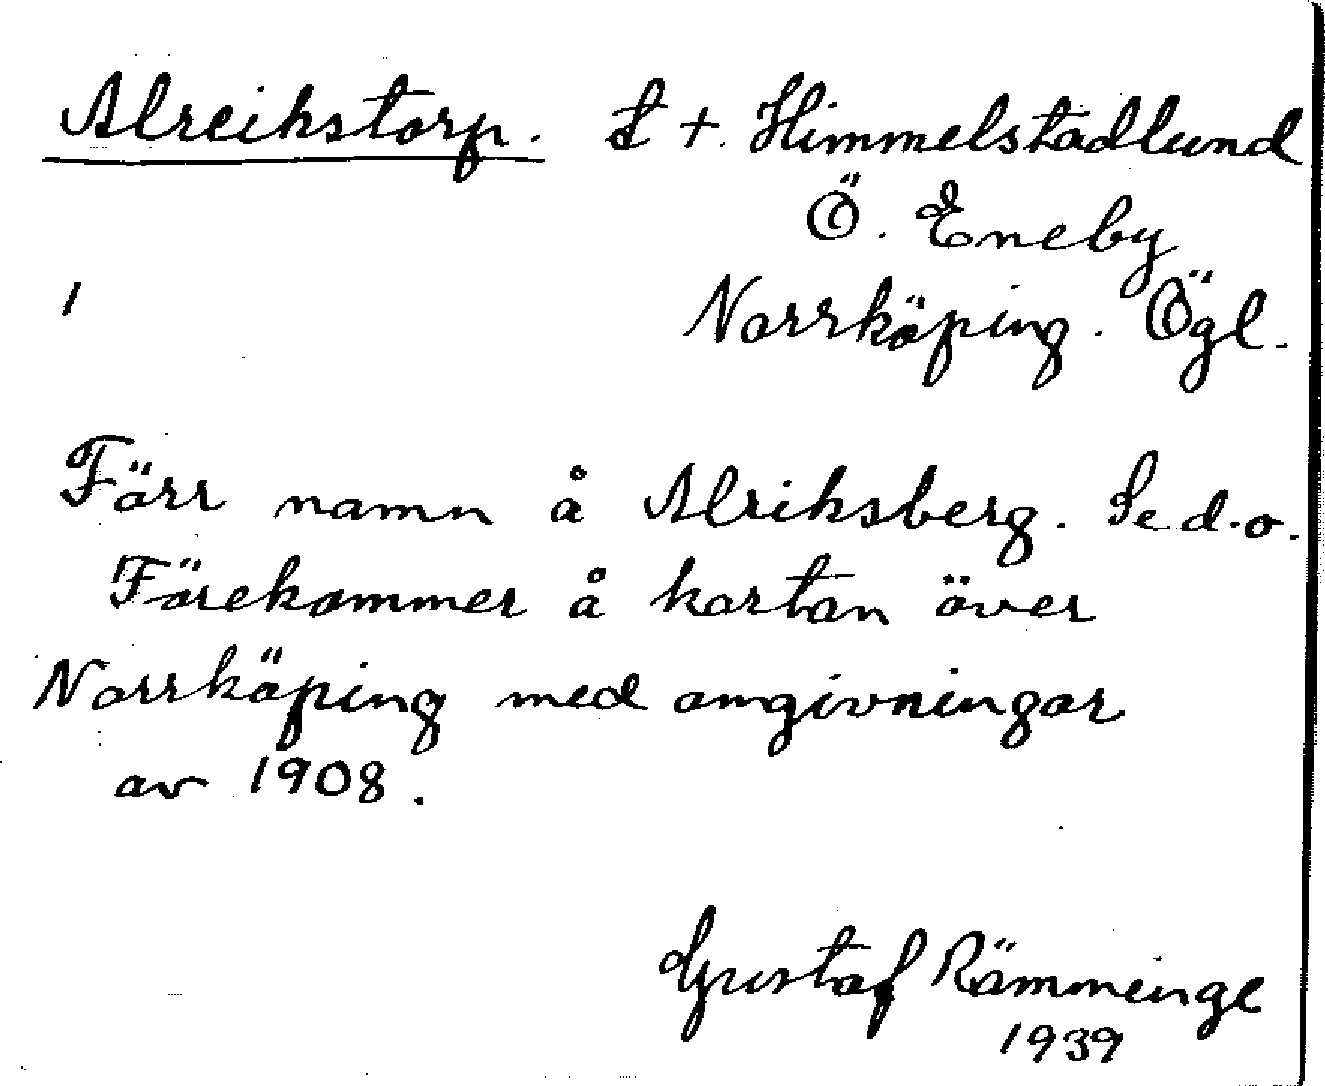 Alreikstorp. L +. Himmelstadlund
Ö. Eneby
1
Norrköping. Ögl.
Förr namn å Alriksberg. Se d.o.
Förekommer å kartan över
Norrköping med omgivningar
av 1908.
Gustaf Rämminge
1939